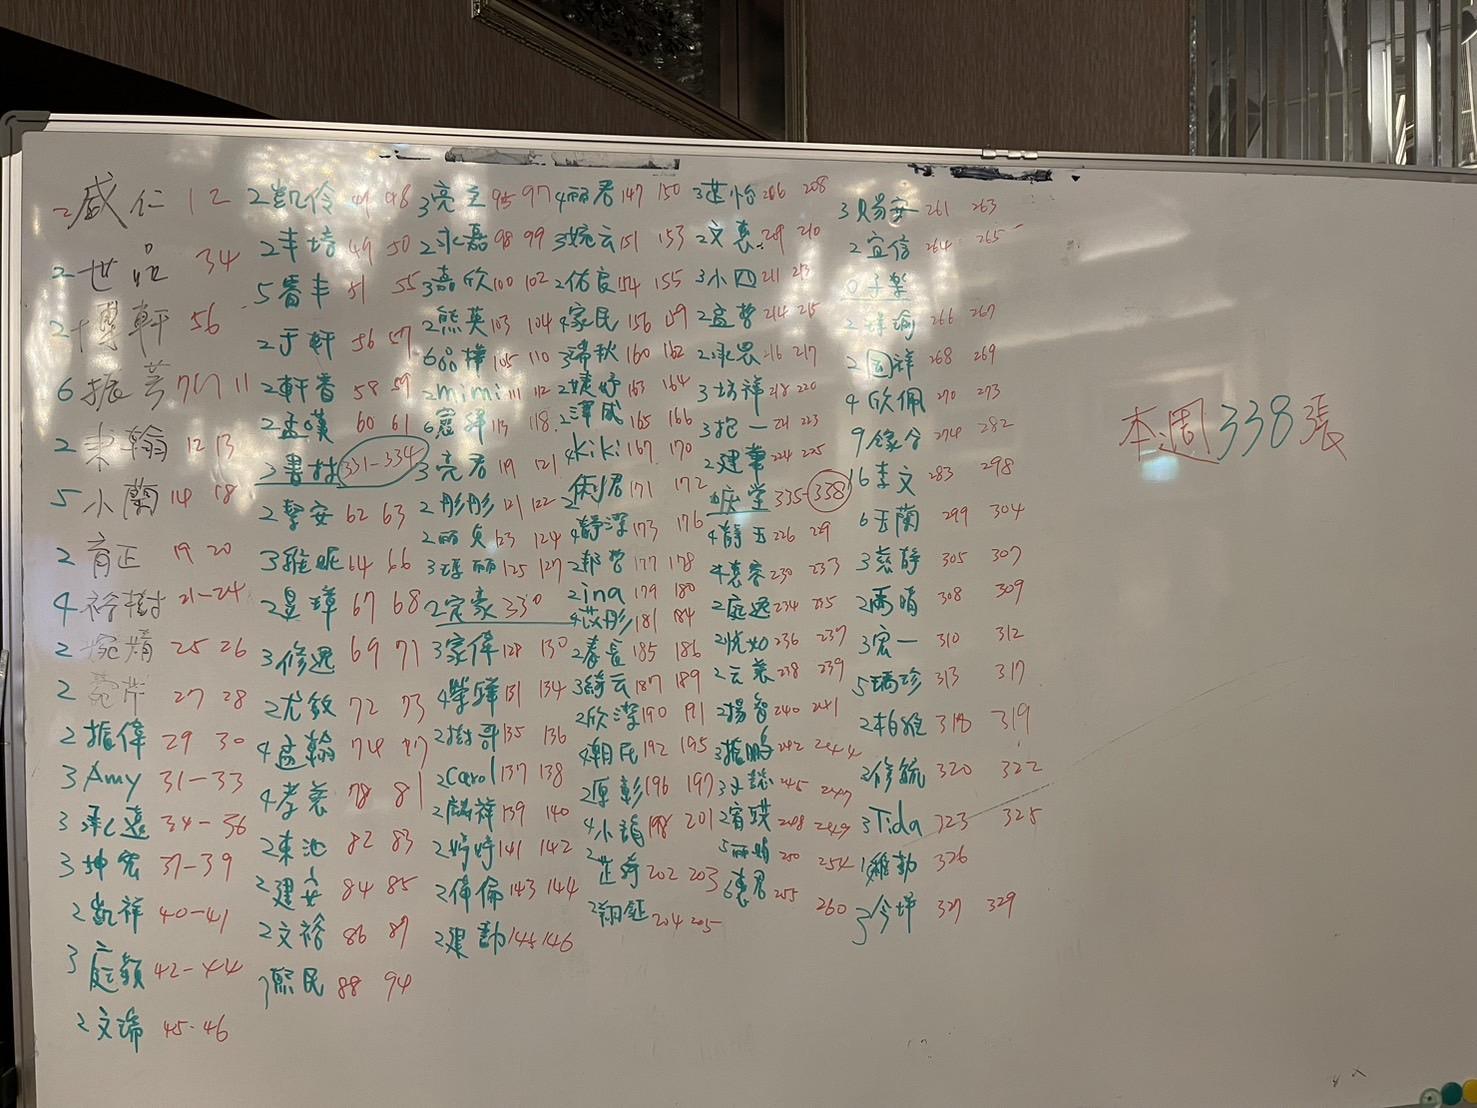 2 威仁 1 2
2 世品 3 4
2 博軒 5 6
6 振芳 7 11
2 東翰 12 13
5 小蘭 14 18
2 育正 19 20
4 裕樹 21-24
2 婉婧 25 26
2 28
27
2 振偉 29 30
3 Amy 31-33
3 承遠 34-36
3 坤宏 37-39
2 凱祥 40-41
3 庭頴 42-44
2 文瑞 45-46
2 凱伶 47 48
2 丰培 49 50
5 晋丰 51 55
2 于軒 56 57
2 軒晋 58 59
2 孟漢 60 61
書材 331-334
2 聖安 62 63
3 雅妮 64 66
2 昱璋 67 68
3 修遠 69 71
2 尤敏 72 73
4 孟翰 74 77
4 孝慈 78 81
2 東池 82 83
2 建安 84 85
2 文裕 86 87
7 熙民 88 94
3 亮之 95 97
2 永嘉 98 99
3 嘉欣 100 102
2 熊英 103 104
6 品樺 105 110
2 mimi 111 112
6 憲鐸 113 118
3 亮君 119 121
2 彤彤 121 122
2 丽貞 123 124
3 琇丽 125 127
2 定豪 330
3 家偉 128 130
4 榮鐸 131 134
2 樹哥 135 136
2 Carol 137 138
2 麟祥 139 140
2 婷婷 141 142
2 偉倫 143 144
2 建勳 145 146
4 丽君 147 150
3 婉云 151 153
2 佑良 154 155
4 家民 156 159
3 瑞秋 160 162
2 婕妤 163 164
2 澤成 165 166
4 KiKi 167 170
2 俐君 171 172
4 靜潔 173 176
2 邦哲 177 178
2 ina 179 180
4 苡彤 181 184
2 春長 185 186
3 綺云 187 189
2 欣潔 190 191
4 朝民 192 195
2 原彰 196 197
4 小龍 198 201
2 芷綺 202 203
2 翔鉦 204 205
3 莛怡 206 208
2 文惠 209 210
3 小四 211 213
2 孟哲 214 215
2 承恩 216 217
3 坊祥 218 220
3 抱一 221 223
2 建華 224 225
宸堂 335-338
4 靜玉 226 229
4 惠容 230 233
2 庭逸 234 235
2 悅如 236 237
2 云蓁 238 239
2 揚智 240 241
3 振鵬 242 244
3 文懿 245 247
2 宥瑛 248 249
5 丽娟 250 254
6 惠君 255 260
3 賜安 261 263
2 宜信 264 265
0 子樂
2 瑋瑜 266 267
2 國祥 268 269
4 欣佩 270 273
9 家合 274 282
16 李文 283 298
6 玉蘭 299 304
3 慈靜 305 307
2 禹晴 308 309
3 宏一 310 312
5 瑀珍 313 317
2 柏維 318 319
修毓 320 322
3 Tida 323 325
1 雅勤 326
3 今坪 327 329
本週338張